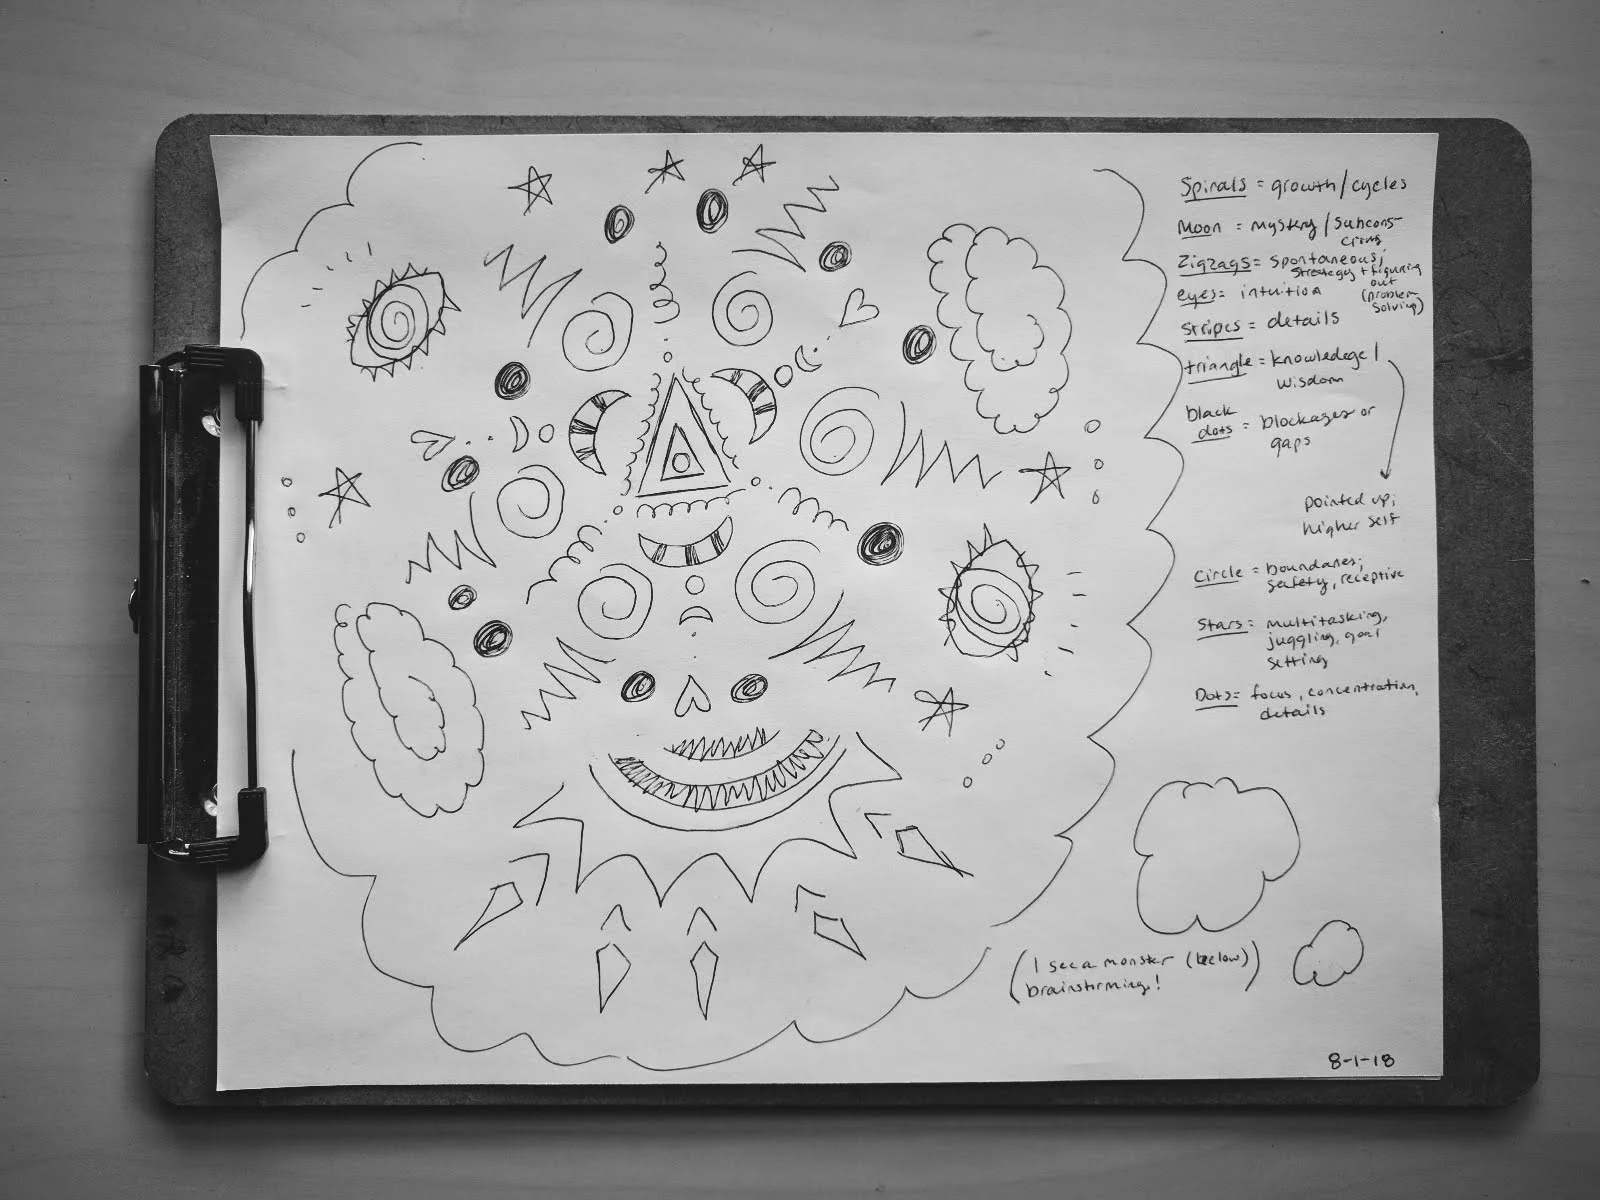 Spirals = growth/cycles
Moon = mystery/subcons-
cious
Zigzags = spontaneous;
strategy + figuring
out
(problem
solving)
eyes = intuition
Stripes = details
triangle = knowledege/
wisdom
black
dots = blockages or
gaps
pointed up;
higher self
Circle = boundaries;
safety, receptive
Stars = multitasking,
juggling, goal
setting
Dots = focus, concentration,
details
(I see a monster (below))
brainstorming!
8-1-18